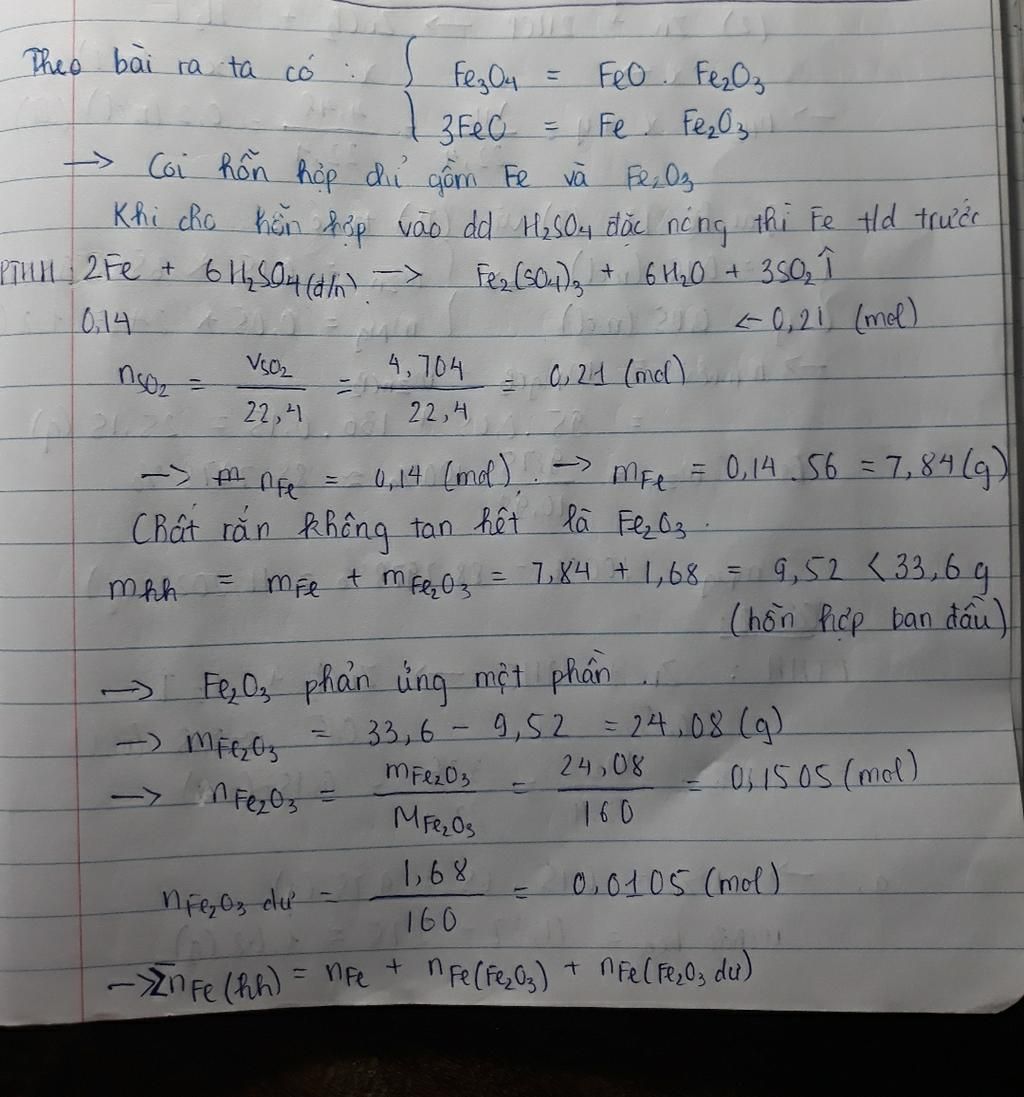 Theo bài ra ta có : { Fe₃O₄ = FeO . Fe₂O₃
3FeO = Fe . Fe₂O₃
→ Coi hỗn hợp chỉ gồm Fe và Fe₂O₃
Khi cho hỗn hợp vào dd H₂SO₄ đặc nóng thì Fe t/d trước
PTHH : 2Fe + 6H₂SO₄(đ/n) → Fe₂(SO₄)₃ + 6H₂O + 3SO₂↑
0,14 ← 0,21 (mol)
nSO₂ = VSO₂ / 22,4 = 4,704 / 22,4 = 0,21 (mol)
→ nFe = 0,14 (mol) . → mFe = 0,14 . 56 = 7,84 (g)
Chất rắn không tan hết là Fe₂O₃ .
mhh = mFe + mFe₂O₃ = 7,84 + 1,68 = 9,52 < 33,6 g
(hỗn hợp ban đầu)
→ Fe₂O₃ phản ứng một phần .
→ mFe₂O₃ = 33,6 - 9,52 = 24,08 (g)
→ nFe₂O₃ = mFe₂O₃ / MFe₂O₃ = 24,08 / 160 = 0,1505 (mol)
nFe₂O₃ dư = 1,68 / 160 = 0,0105 (mol)
→ ΣnFe (hh) = nFe + nFe(Fe₂O₃) + nFe(Fe₂O₃ dư)